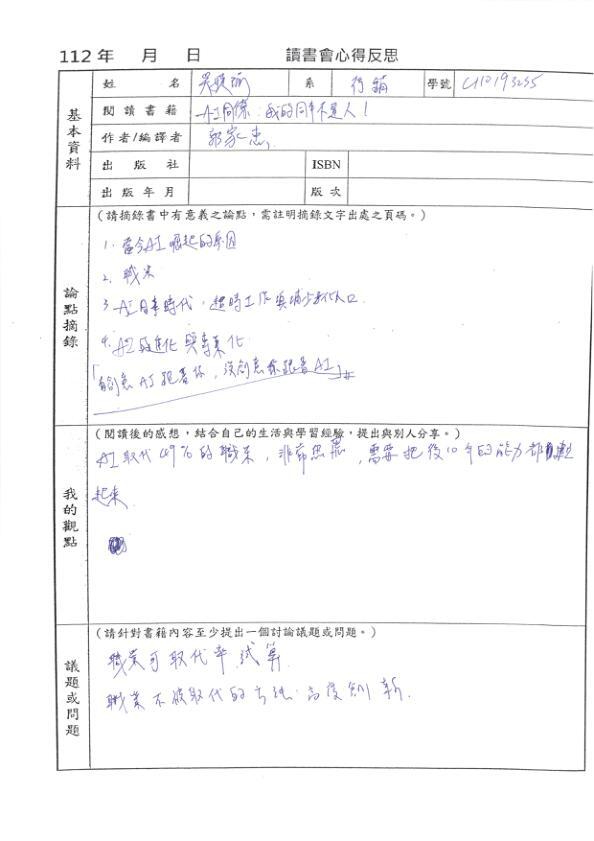 112 年 月 日 讀書會心得反思
基本資料
姓名 吳 系 行銷 學號 C110193235
閱讀書籍 AI同僚:我的同事不是人!
作者/編譯者 郭家忠
出版社 ISBN
出版年月 版次
論點摘錄
(請摘錄書中有意義之論點,需註明摘錄文字出處之頁碼。)
1. 當今AI崛起的原因
2. 職業
3. AI日本時代,超時工作與減少人口.
4. AI的進化與專業化
「有創意AI跟著你,沒創意你跟著AI」#
我的觀點
(閱讀後的感想,結合自己的生活與學習經驗,提出與別人分享。)
AI取代49%的職業,非常思慮,需要把後10年的能力都
起來.
議題或問題
(請針對書籍內容至少提出一個討論議題或問題。)
職業可取代率試算
職業不被取代的方法:高度創新.